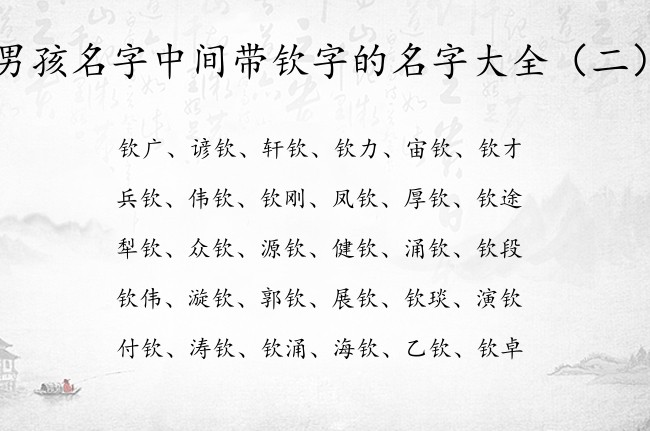 男孩名字中间带钦字的名字大全（二）
钦广、谚钦、轩钦、钦力、宙钦、钦才
兵钦、伟钦、钦刚、凤钦、厚钦、钦途
犁钦、众钦、源钦、健钦、涌钦、钦段
钦伟、漩钦、郭钦、展钦、钦琰、演钦
付钦、涛钦、钦涌、海钦、乙钦、钦卓